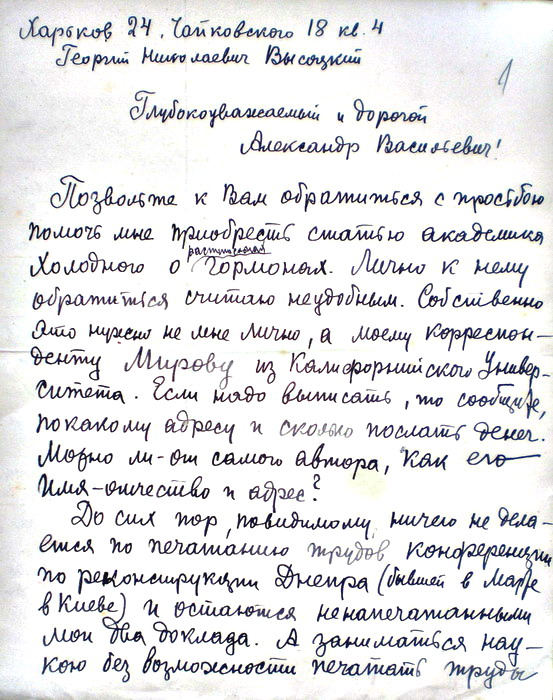 Харьков 24, Чайковского 18 кв. 4
Георгий Николаевич Высоцкий
1
Глубокоуважаемый и дорогой
Александр Васильевич!
Позвольте к Вам обратиться с просьбою
помочь мне приобресть статью академика
растительных
Холодного о гормонах. Лично к нему
обратиться считаю неудобным. Собственно
это нужно не мне лично, а моему корреспон-
денту Мирову из Калифорнийского Универ-
ситета. Если надо выписать, то сообщите,
по какому адресу и сколько послать денег.
Можно ли от самого автора, как его
имя-отчество и адрес?
До сих пор, повидимому, ничего не дела-
ется по печатанию трудов конференции
по реконструкции Днепра (бывшей в Марте
в Киеве) и остаются ненапечатанными
мои два доклада. А заниматься нау-
кою без возможности печатать труды